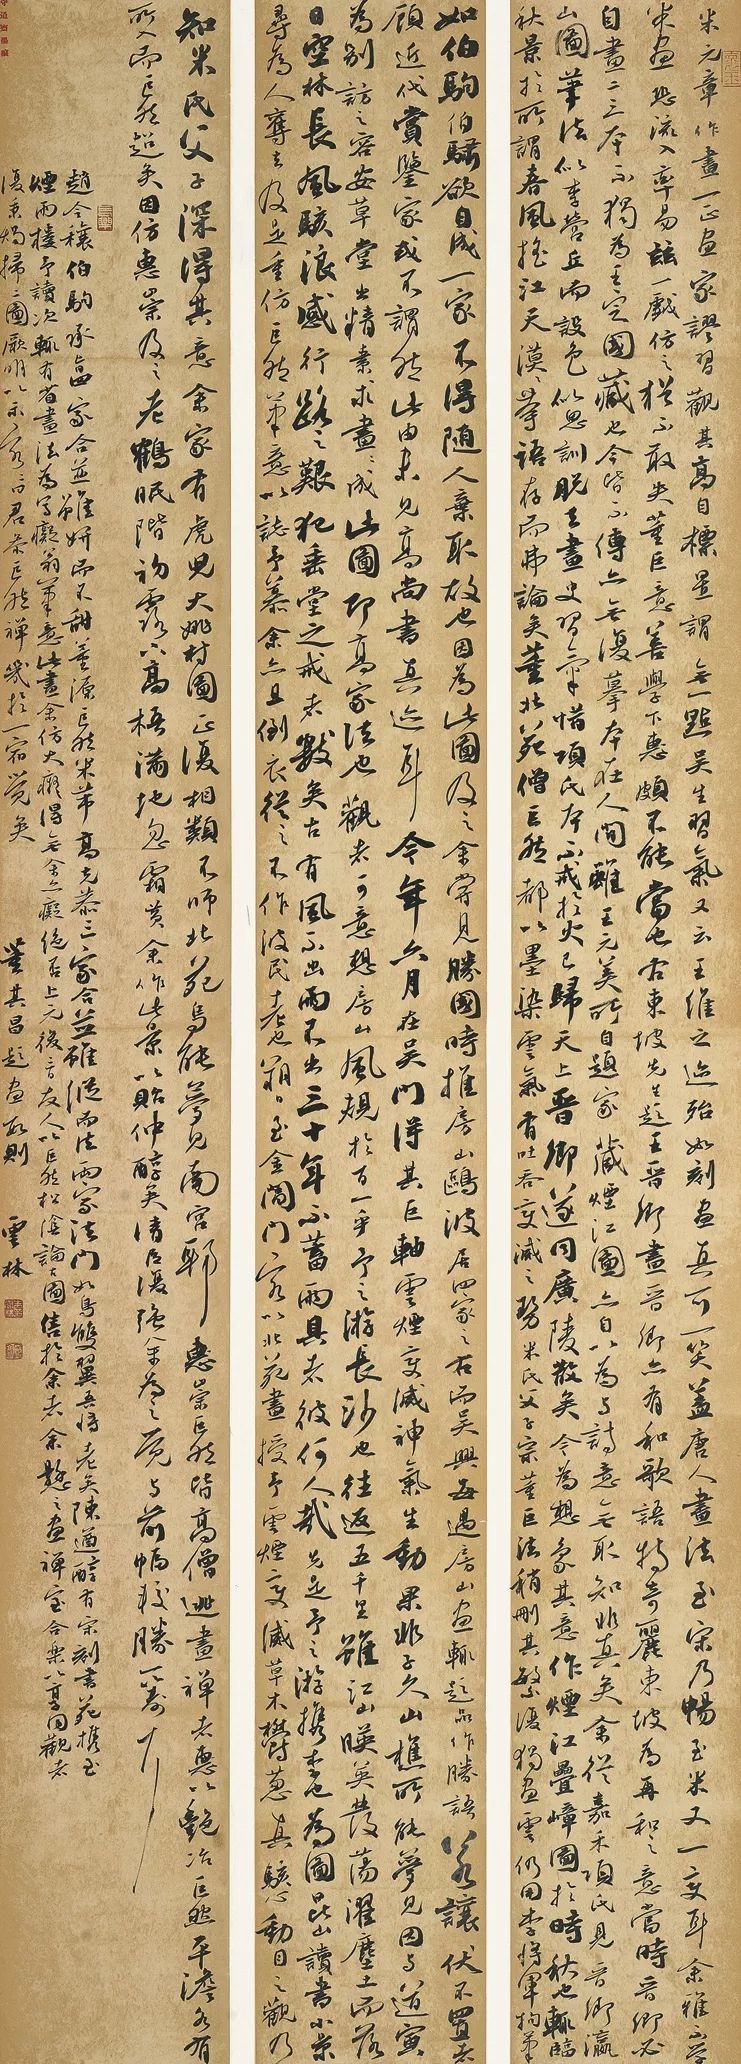 米元章作畫一正畫家謬習觀其高自標置謂無一點吳生習氣又云王維之迹殆如刻畫真可一笑蓋唐人畫法至宋乃暢至米又一變耳余雅不學
米畫恐流入率易茲一戲仿之猶不敢失董巨意善學下惠頗不能當也右東坡先生題王晉卿畫晉卿亦有和歌語特奇麗東坡為再和之意當時晉卿必
自畫二三本不獨為王定國藏也今皆不傳亦無復摹本在人間雖王元美所自題家藏煙江圖亦自以為與詩意無取知非真矣余從嘉禾項氏見晉卿瀛
山圖筆法似李營丘而設色似思訓脫去畫史習氣惜項氏本不戒於火已歸天上晉卿遂同廣陵散矣今為想象其意作煙江疊嶂圖於時秋也輒臨
秋景於所謂春風搖江天漠漠等語存而弗論矣董北苑僧巨然都以墨染雲氣有吐吞變滅之勢米氏父子宗董巨法稍刪其繁複獨畫雲仍用李將軍拘筆
如伯駒伯驌欲自成一家不得隨人棄取故也因為此圖及之余嘗見勝國時推房山鷗波居四家之右而吳興每遇房山畫輒題品作勝語若讓伏不置者
顧近代賞鑒家或不謂然此由未見高尚書真迹耳今年六月在吳門得其巨軸雲煙變滅神氣生動果非子久山樵所能夢見因與道寅
為別訪之容安草堂出精素求畫畫成此圖即高家法也觀者可意想房山風規於百一乎予之游長沙也往返五千里雖江山映發蕩濯塵土而落
日空林長風駭浪感行路之艱犯垂堂之戒者數矣古有風不出雨不出三十年不蓄雨具者彼何人哉先是予之游攜李也為圖昆山讀書小景
尋為人奪去及是重仿巨然筆意以誌予慕余亦且倒衣從之不作波民老也朔日至金閶門客以北苑畫授予雲煙變滅草木鬱蔥真駭心動目之觀乃
知米氏父子深得其意余家有虎兒大姚村圖正復相類不師北苑烏能夢見南宮耶惠崇巨然皆高僧逃畫禪者惠以艷冶巨然平淡各有
所入而巨然超矣因仿惠崇及之老鶴眠階初露下高梧滿地忽霜黃余作此景以貽仲醇矣清臣復強余為之覓與前幅較勝一籌
趙令穰伯駒承旨三家合並雖妍而不甜董源巨然米芾高克恭三家合並雖縱而法兩家法門如鳥雙翼吾將老矣陳道醇有宋刻書苑攜至
煙雨樓予讀次輒有省畫法為寫癡翁筆意此畫余仿大癡得無余亦癡絕否上元後有友人以巨然松陰論古圖售於余者余懸之畫禪室合樂以享同觀者
復秉燭掃二圖厥明以示客客言君參巨然禪幾於一宿覺矣
董其昌題畫數則 雲林